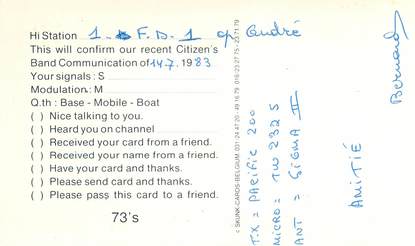 Hi Station 1. F. D. 1 op André
This will confirm our recent Citizen's
Band Communication of 14.7. 1983
Your signals: S
Modulation: M
Q.th : Base - Mobile - Boat
( ) Nice talking to you.
( ) Heard you on channel
( ) Received your card from a friend.
( ) Received your name from a friend.
( ) Have your card and thanks.
( ) Please send card and thanks.
( ) Please pass this card to a friend.
73's
© SKUNK-CARDS-BELGIUM. 031-24.47.20 - 49.16.79 016-23.27.15 - 23.71.79
TX = PACIFIC 200
MICRO = TW 232 S
ANT = SIGMA II
AMITIÉ
Bernard